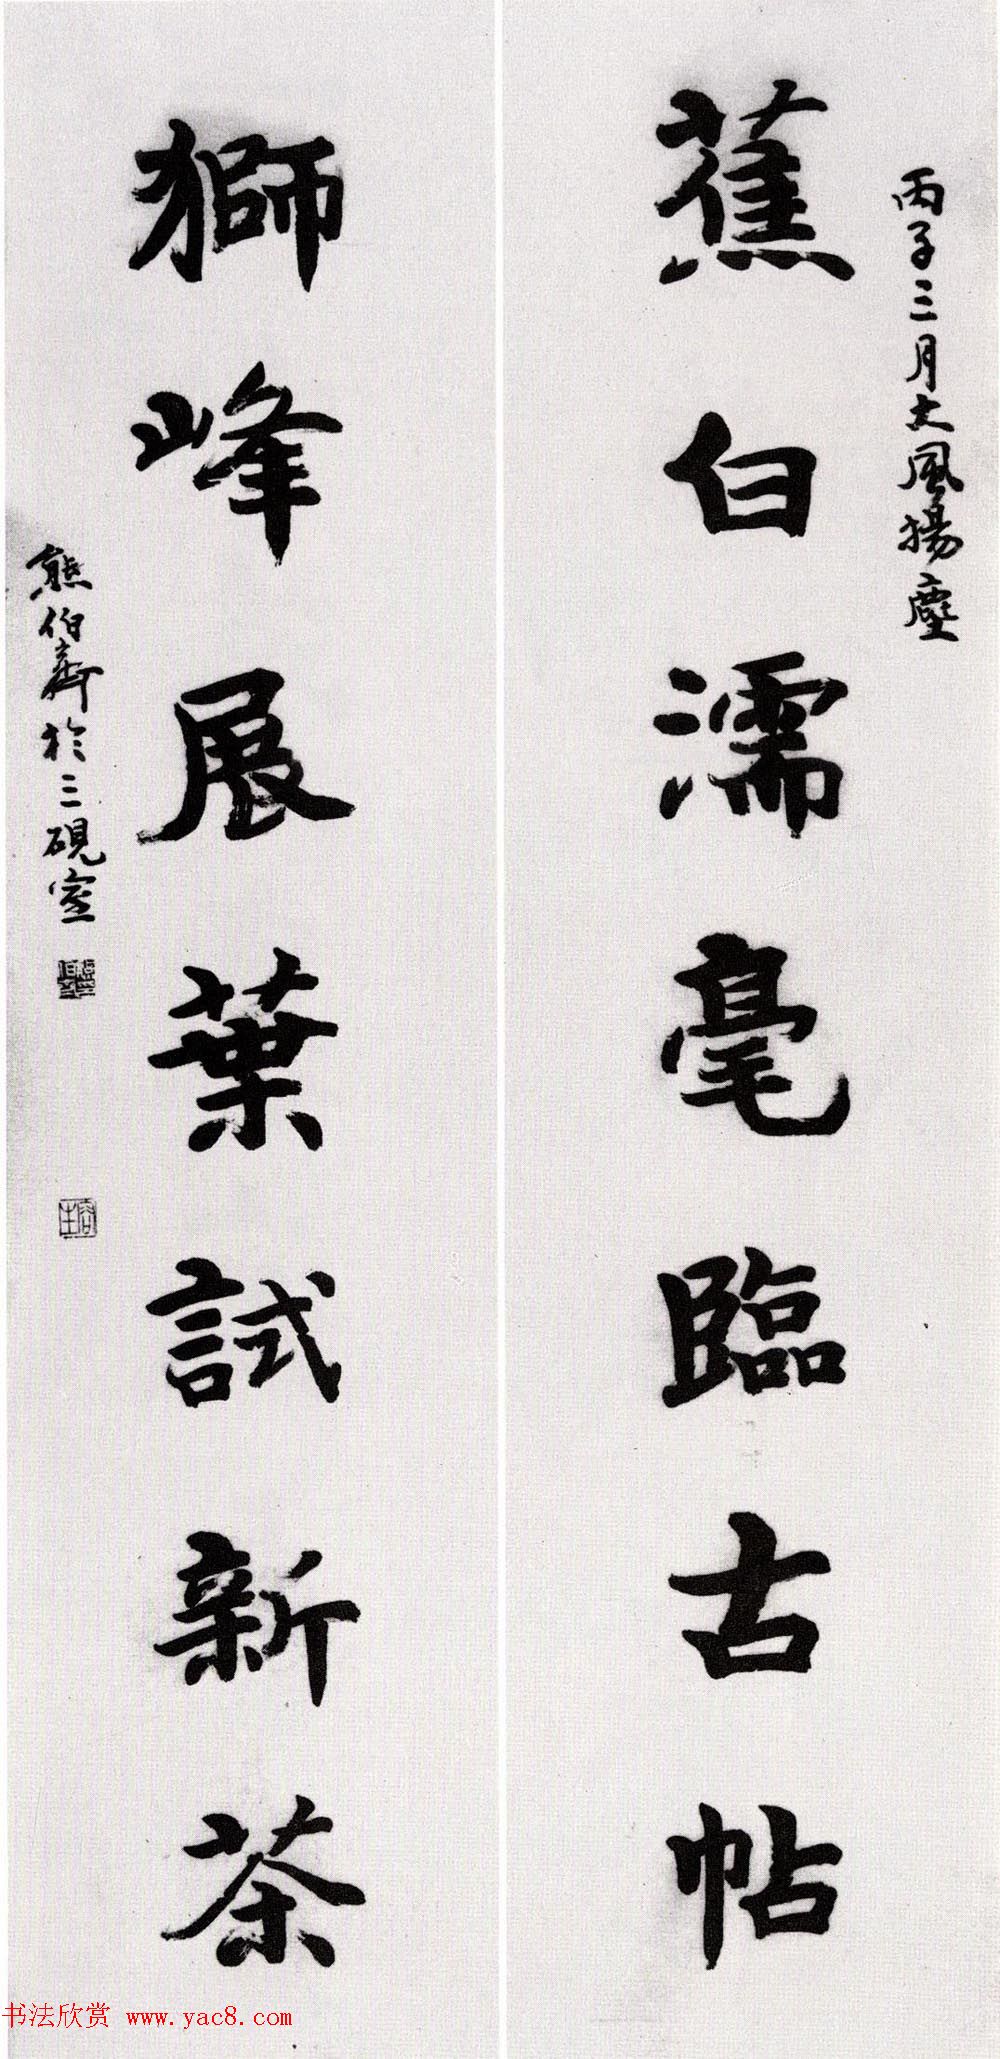 丙子三月大風揚塵
蕉白濡毫臨古帖
獅峰展葉試新茶
熊伯齊於三硯室
书法欣赏 www.yac8.com